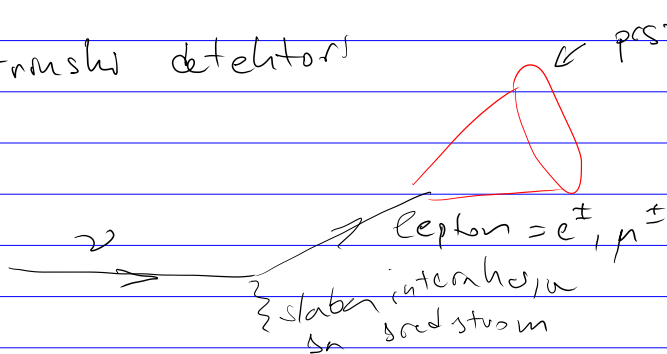 detektori
ν
lepton = e±, μ±
slaba interakcija
sa sredstvom